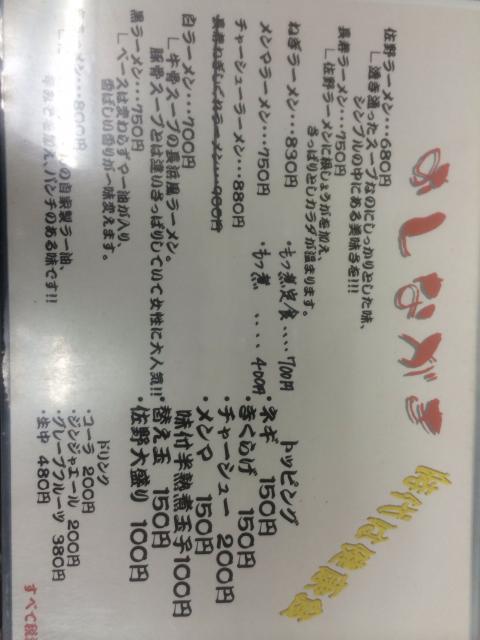 おしながき
佐野ラーメン・・・680円
透き通ったスープなのにしっかりとした味、
シンプルの中にある美味さを!!!
長寿ラーメン・・・750円
佐野ラーメンに根しょうがを加え、
さっぱりとしカラダが温まります。
ねぎラーメン・・・830円
メンマラーメン・・・750円
チャーシューラーメン・・・880円
長寿ねぎしぐれラーメン・・・900円
白ラーメン・・・700円
牛骨スープの長浜風ラーメン。
豚骨スープとは違いさっぱりしていて女性に大人気!!
黒ラーメン・・・750円
ベースは変わらずマー油が入り、
香ばしい香りが一味変えます。
ラーメン・・・800円
の自家製ラー油、
辛みを加え、パンチのある味です!!
・もつ煮定食・・・・700円
・もつ煮・・・・400円
トッピング
・ネギ 150円
・きくらげ 150円
・チャーシュー 200円
・メンマ 150円
味付半熟煮玉子100円
・替え玉 150円
・佐野大盛り 100円
ドリンク
・コーラ 200円
・ジンジャエール 200円
・グレープフルーツ 380円
・生中 480円
すべて税